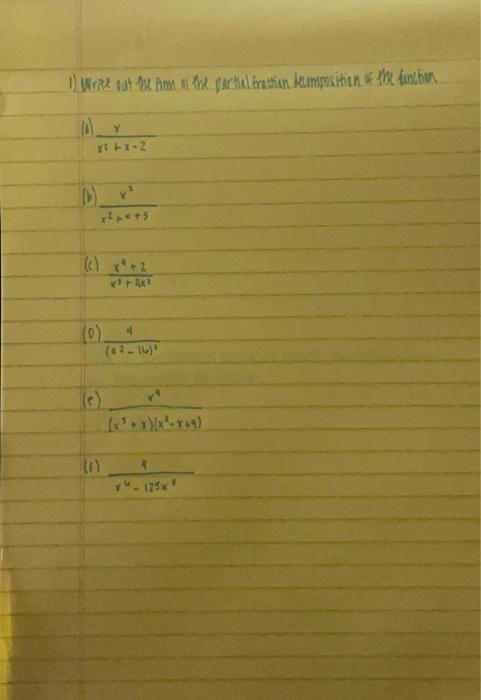 1) Write out the form of the partial fraction decomposition of the function
(a) x
x² + x - 2
(b) x²
x² + x + 5
(c) x⁴ + 2
x⁵ +
(D) 4
(x² - 16)²
(e) x⁴
(x³ + x)(x² - x + 9)
(F) 4
- 125x³